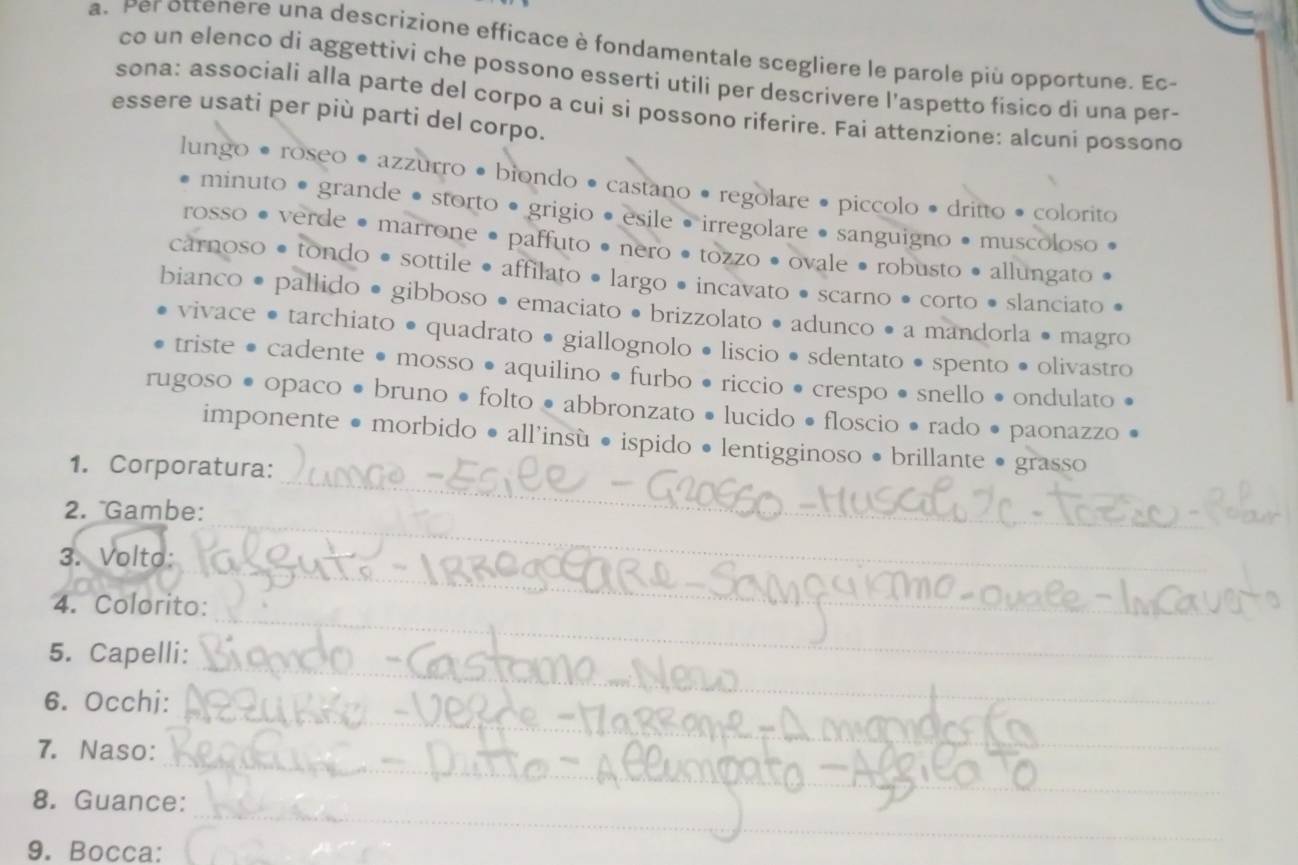 a. Per ottenere una descrizione efficace è fondamentale scegliere le parole più opportune. Ec-
co un elenco di aggettivi che possono esserti utili per descrivere l'aspetto fisico di una per-
sona: associali alla parte del corpo a cui si possono riferire. Fai attenzione: alcuni possono
essere usati per più parti del corpo.
lungo • roseo • azzurro • biondo • castano • regolare • piccolo • dritto • colorito
• minuto • grande • storto • grigio • esile • irregolare • sanguigno • muscoloso •
rosso • verde • marrone • paffuto • nero • tozzo • ovale • robusto • allungato •
carnoso • tondo • sottile • affilato • largo • incavato • scarno • corto • slanciato •
bianco • pallido • gibboso • emaciato • brizzolato • adunco • a mandorla • magro
• vivace • tarchiato • quadrato • giallognolo • liscio • sdentato • spento • olivastro
• triste • cadente • mosso • aquilino • furbo • riccio • crespo • snello • ondulato •
rugoso • opaco • bruno • folto • abbronzato • lucido • floscio • rado • paonazzo •
imponente • morbido • all'insù • ispido • lentigginoso • brillante • grasso
1. Corporatura: - Esile - Grosso -
2. Gambe:
3. Volto: Paffuto - IRRegolaRe - Sanguinno - ovale - Incavato
4. Colorito:
5. Capelli: Biondo - Castano - Nero
6. Occhi: AzzuRRo - Verde - MaRRone - A mandorla
7. Naso: Regolare - Dritto - Allungato - Affilato
8. Guance:
9. Bocca: